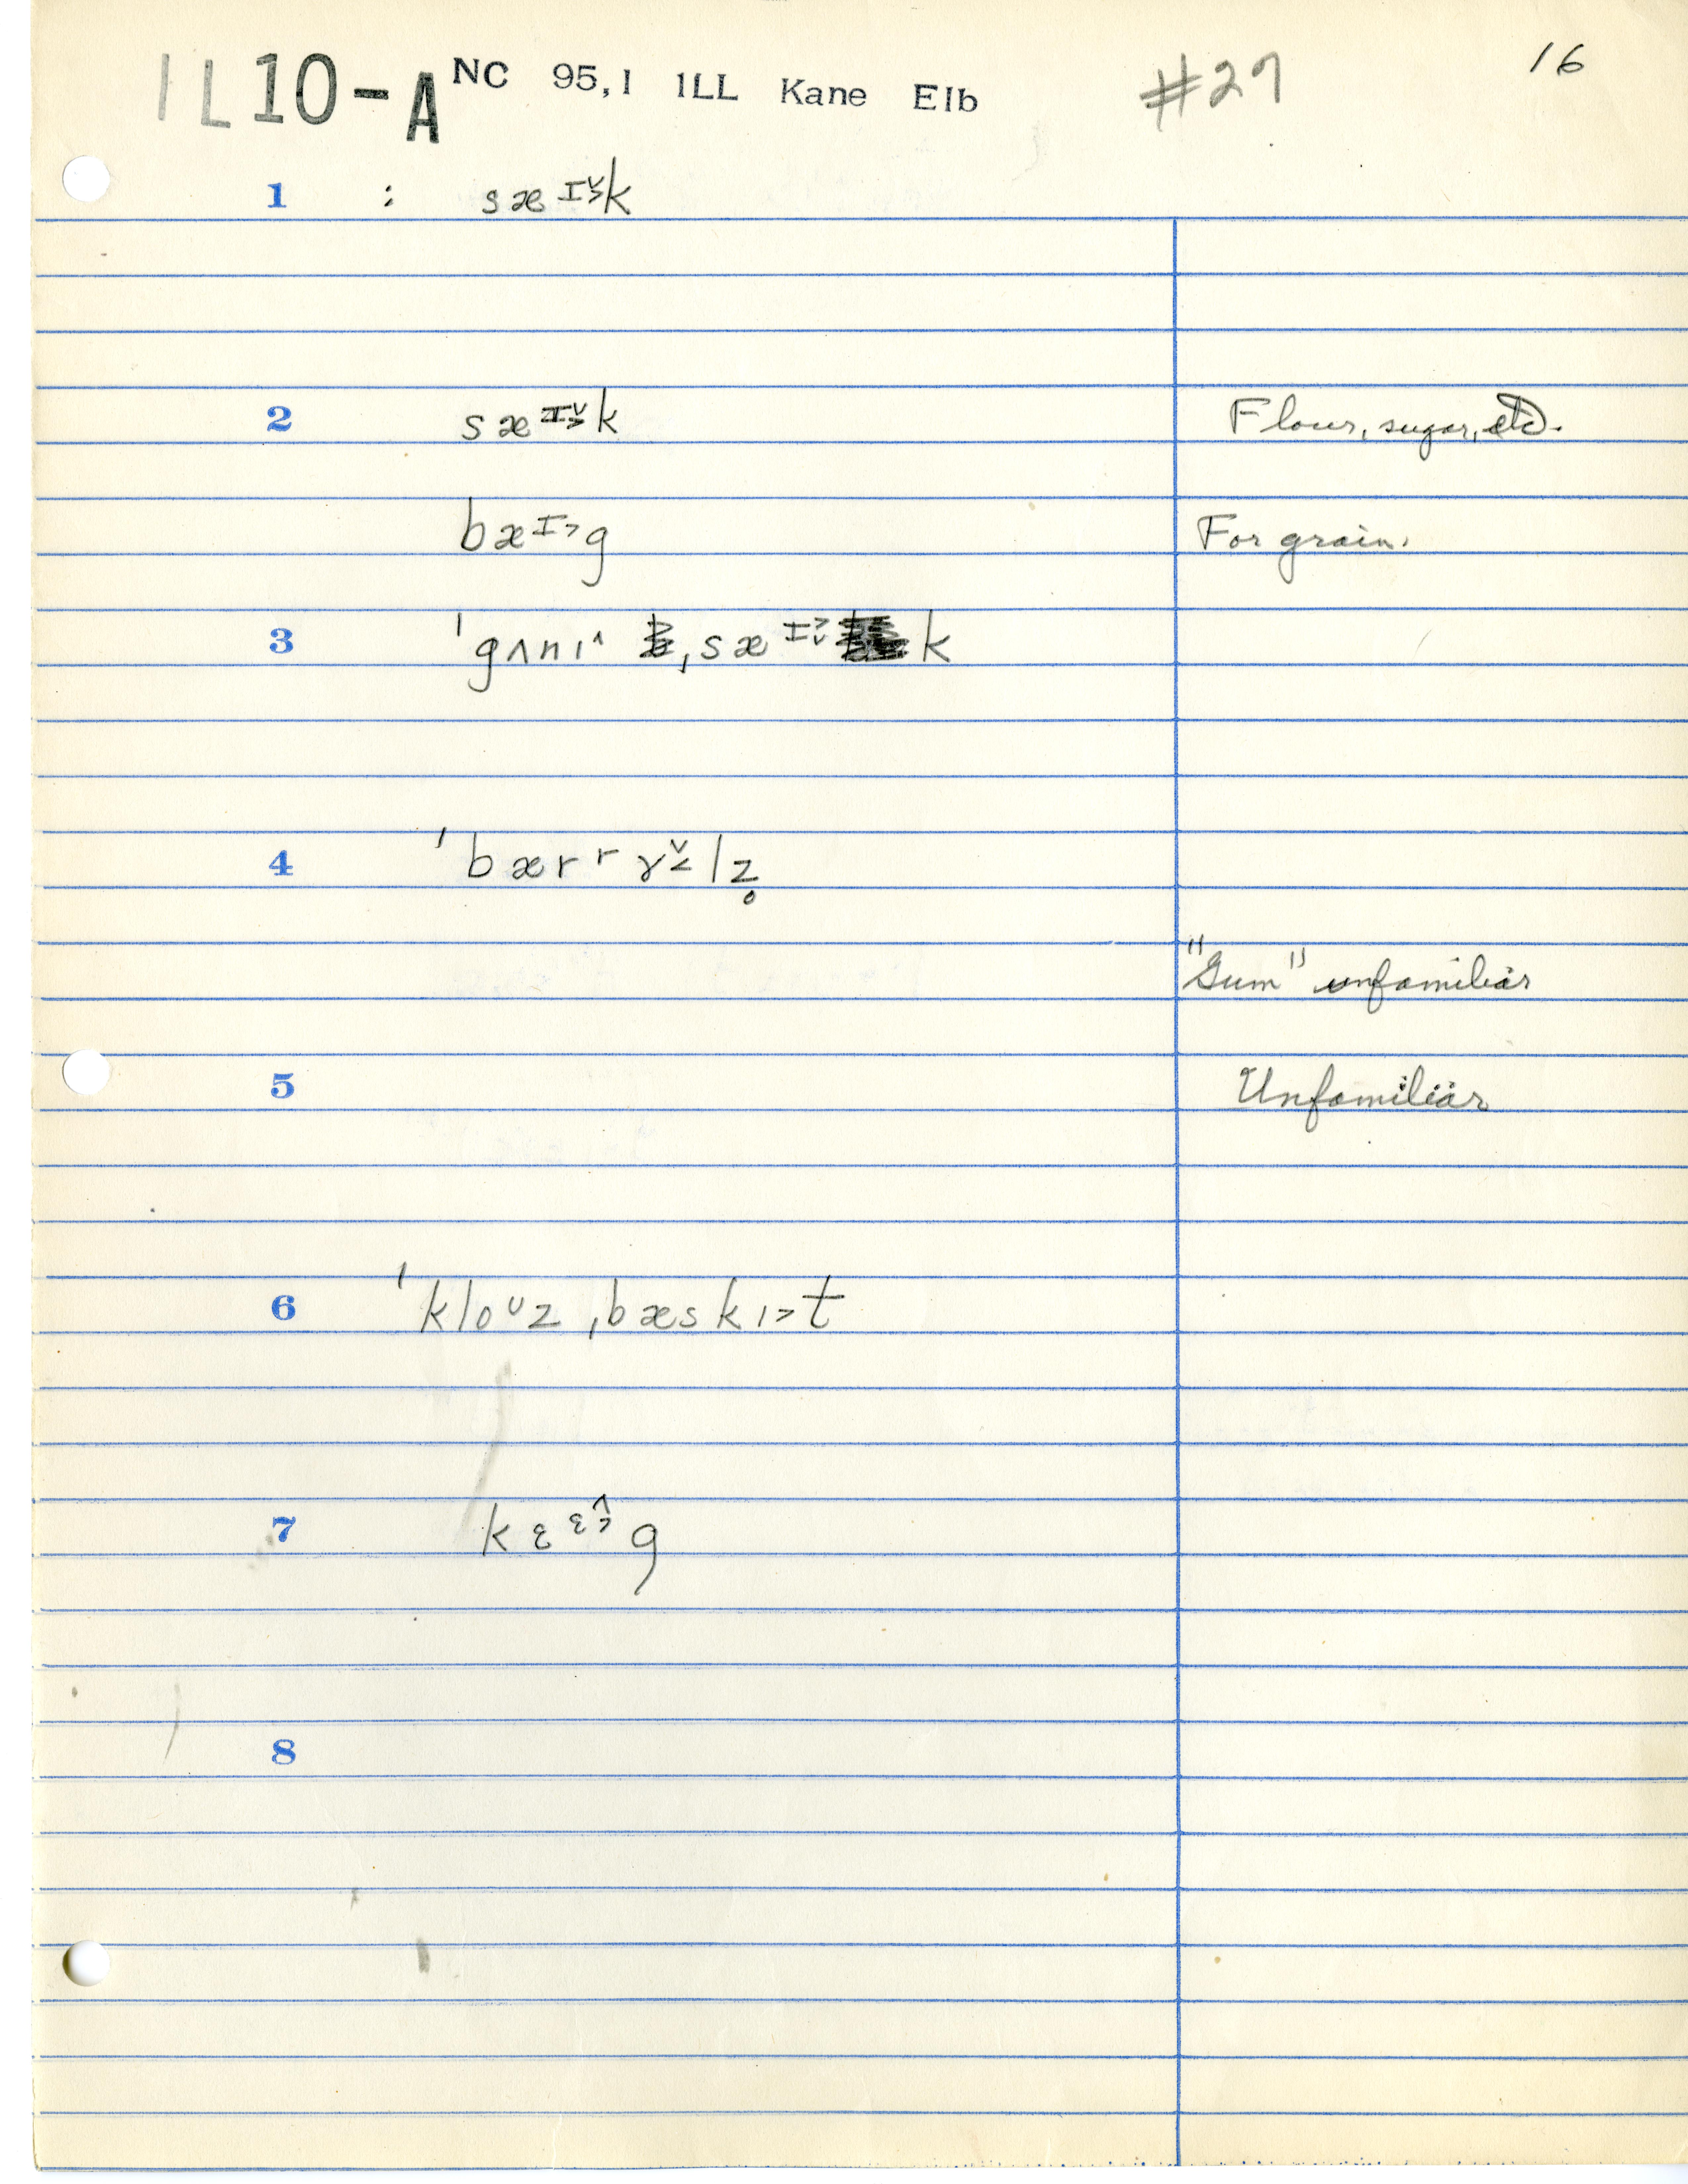 IL10-A NC 95,1 ILL Kane Elb #27 16
1 : sæɪ˅˃k
2 sæɪ˅˃k Flour, sugar, etc.
bæɪ˃g For grain.
3 ˈgʌnɪ˄ ˌsæɪ˃˅k
4 ˈbærʳɤ˅˂lz̥
"Gum" unfamiliar
5 Unfamiliar
6 ˈkloᶷz ˌbæskɪ˃t
7 kɛᵋ˄˃g
8